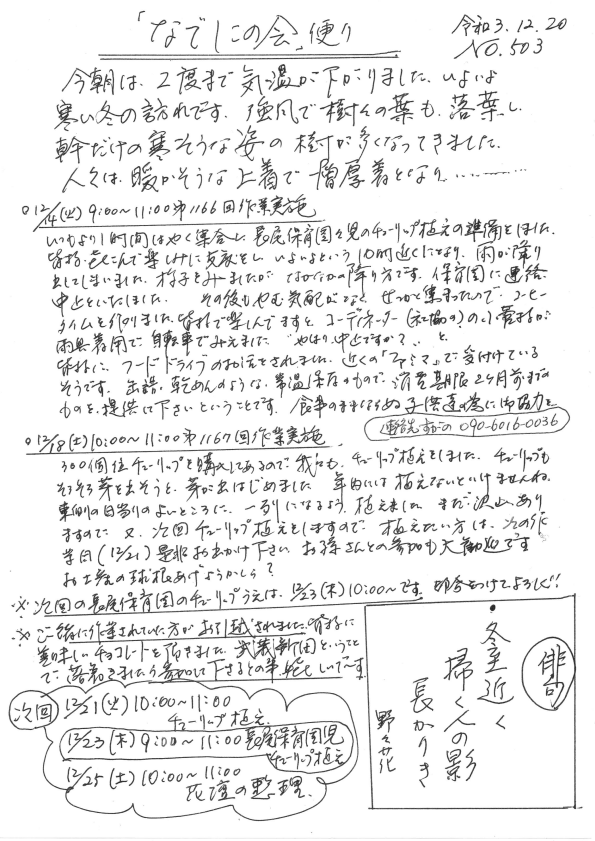 「なでしこの会」便り
令和3.12.20
NO.503
今朝は、2度まで気温が下がりました、いよいよ
寒い冬の訪れです。強風で樹々の葉も、落葉し
幹だけの寒そうな姿の樹が多くなってきました。
人々は、暖かそうな上着で層厚着となり、…………
○12/14(火)9:00~11:00第1166回作業実施
いつもより1時間はやく集合し長尾保育園々児のチューリップ植えの準備をしました。
皆様、よろこんで楽しみに支度をし、いよいよという10時近くになり、雨が降り
出してしまいました。様子をみましたが、なかなかの降り方です。保育園に連絡
中止といたしました。その後もやむ気配がなく、せっかく集まったので、コーヒー
タイムを作りました。皆様で楽しんでますと、コーディネーター(社協の)の
雨具着用で、自転車でみえました。"やはり、中止ですか?"と
皆様に、フードドライブのお話をされました。近くの「ファミマ」で受付けている
そうです。缶詰、乾めんのような、常温保存のもので、消費期限2ヶ月前までの
ものを、提供して下さいということです。食事のままならぬ子供達の為に御協力を
連絡するの 090-6016-0036
○12/18(土)10:00~11:00第1167回作業実施
300個位チューリップを購入してあるので、我らも、チューリップ植えをしました。チューリップも
そろそろ芽を出そうと、芽が出はじめました 年内には植えないといけませんね。
東側の日当りのよいところに、一列になるよう、植えました まだ沢山あり
ますので 又、次回チューリップ植えをしますので、植えたい方は、次の作
業日(12/21)是非お出かけ下さい お孫さんとの参加も大歓迎です
お土産の球根あげようかしら?
※次回の長尾保育園のチューリップうえは、12/23(木)10:00~です。時各をつけてよろしく!!
※ご一緒に作業されていた方がお引越されました。皆様に
美味しいチョコレートを頂きました。武蔵新田ということ
で、落着きましたら参加して下さるとの事、
次回
12/21(火)10:00~11:00
チューリップ植え
12/23(木)9:00~11:00長尾保育園児
チューリップ植え
12/25(土)10:00~11:00
花壇の整理
俳句
冬至近く
掃く人の影
長かりき
野々花